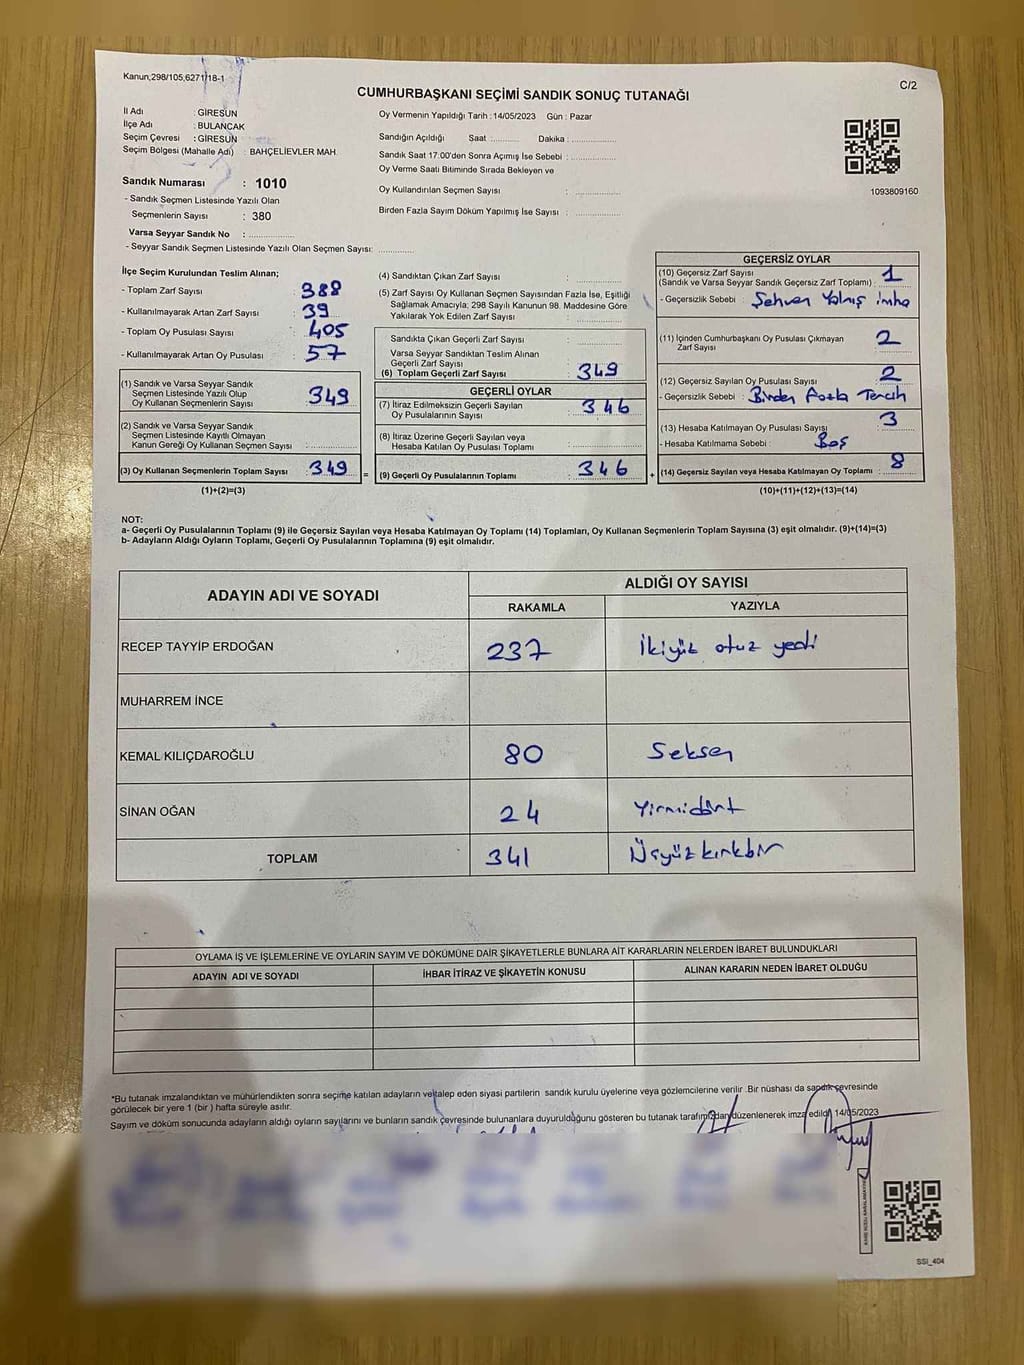 Kanun,298/105,6271/18-1
C/2
CUMHURBAŞKANI SEÇİMİ SANDIK SONUÇ TUTANAĞI
İl Adı : GİRESUN
İlçe Adı : BULANCAK
Seçim Çevresi : GİRESUN
Seçim Bölgesi (Mahalle Adı) : BAHÇELİEVLER MAH.
Sandık Numarası : 1010
- Sandık Seçmen Listesinde Yazılı Olan
Seçmenlerin Sayısı : 380
Varsa Seyyar Sandık No : ..............
- Seyyar Sandık Seçmen Listesinde Yazılı Olan Seçmen Sayısı: ............
Oy Vermenin Yapıldığı Tarih : 14/05/2023 Gün : Pazar
Sandığın Açıldığı Saat : .......... Dakika : ..............
Sandık Saat 17:00'den Sonra Açımış İse Sebebi : ..............
Oy Verme Saati Bitiminde Sırada Bekleyen ve
Oy Kullandırılan Seçmen Sayısı : ..............
Birden Fazla Sayım Döküm Yapılmış İse Sayısı : ..............
1093809160
İlçe Seçim Kurulundan Teslim Alınan;
- Toplam Zarf Sayısı : 388
- Kullanılmayarak Artan Zarf Sayısı : 39
- Toplam Oy Pusulası Sayısı : 405
- Kullanılmayarak Artan Oy Pusulası : 57
(1) Sandık ve Varsa Seyyar Sandık
Seçmen Listesinde Yazılı Olup
Oy Kullanan Seçmenlerin Sayısı : 349
(2) Sandık ve Varsa Seyyar Sandık
Seçmen Listesinde Kayıtlı Olmayan
Kanun Gereği Oy Kullanan Seçmen Sayısı : ..............
(3) Oy Kullanan Seçmenlerin Toplam Sayısı : 349 =
(1)+(2)=(3)
(4) Sandıktan Çıkan Zarf Sayısı : ..............
(5) Zarf Sayısı Oy Kullanan Seçmen Sayısından Fazla İse, Eşitliği
Sağlamak Amacıyla; 298 Sayılı Kanunun 98. Maddesine Göre
Yakılarak Yok Edilen Zarf Sayısı : ..............
Sandıkta Çıkan Geçerli Zarf Sayısı : ..............
Varsa Seyyar Sandıktan Teslim Alınan
Geçerli Zarf Sayısı : ..............
(6) Toplam Geçerli Zarf Sayısı : 349
GEÇERLİ OYLAR
(7) İtiraz Edilmeksizin Geçerli Sayılan
Oy Pusulalarının Sayısı : 346
(8) İtiraz Üzerine Geçerli Sayılan veya
Hesaba Katılan Oy Pusulası Toplamı : ..............
(9) Geçerli Oy Pusulalarının Toplamı : 346 +
GEÇERSİZ OYLAR
(10) Geçersiz Zarf Sayısı
(Sandık ve Varsa Seyyar Sandık Geçersiz Zarf Toplamı) : 1
- Geçersizlik Sebebi : Sehven Yalnış imha
(11) İçinden Cumhurbaşkanı Oy Pusulası Çıkmayan
Zarf Sayısı : 2
(12) Geçersiz Sayılan Oy Pusulası Sayısı : 2
- Geçersizlik Sebebi : Birden Fazla Tercih
(13) Hesaba Katılmayan Oy Pusulası Sayısı : 3
- Hesaba Katılmama Sebebi : Boş
(14) Geçersiz Sayılan veya Hesaba Katılmayan Oy Toplamı : 8
(10)+(11)+(12)+(13)=(14)
NOT:
a- Geçerli Oy Pusulalarının Toplamı (9) ile Geçersiz Sayılan veya Hesaba Katılmayan Oy Toplamı (14) Toplamları, Oy Kullanan Seçmenlerin Toplam Sayısına (3) eşit olmalıdır. (9)+(14)=(3)
b- Adayların Aldığı Oyların Toplamı, Geçerli Oy Pusulalarının Toplamına (9) eşit olmalıdır.
ADAYIN ADI VE SOYADI
ALDIĞI OY SAYISI
RAKAMLA YAZIYLA
RECEP TAYYİP ERDOĞAN 237 İkiyüz otuz yedi
MUHARREM İNCE
KEMAL KILIÇDAROĞLU 80 Seksen
SİNAN OĞAN 24 Yirmidört
TOPLAM 341 Üçyüzkırkbir
OYLAMA İŞ VE İŞLEMLERİNE VE OYLARIN SAYIM VE DÖKÜMÜNE DAİR ŞİKAYETLERLE BUNLARA AİT KARARLARIN NELERDEN İBARET BULUNDUKLARI
ADAYIN ADI VE SOYADI İHBAR İTİRAZ VE ŞİKAYETİN KONUSU ALINAN KARARIN NEDEN İBARET OLDUĞU
*Bu tutanak imzalandıktan ve mühürlendikten sonra seçime katılan adayların ve talep eden siyasi partilerin sandık kurulu üyelerine veya gözlemcilerine verilir. Bir nüshası da sandık çevresinde
görülecek bir yere 1 (bir) hafta süreyle asılır.
Sayım ve döküm sonucunda adayların aldığı oyların sayılarını ve bunların sandık çevresinde bulunanlara duyurulduğunu gösteren bu tutanak tarafımızdan düzenlenerek imza edildi. 14/05/2023
SSİ_404